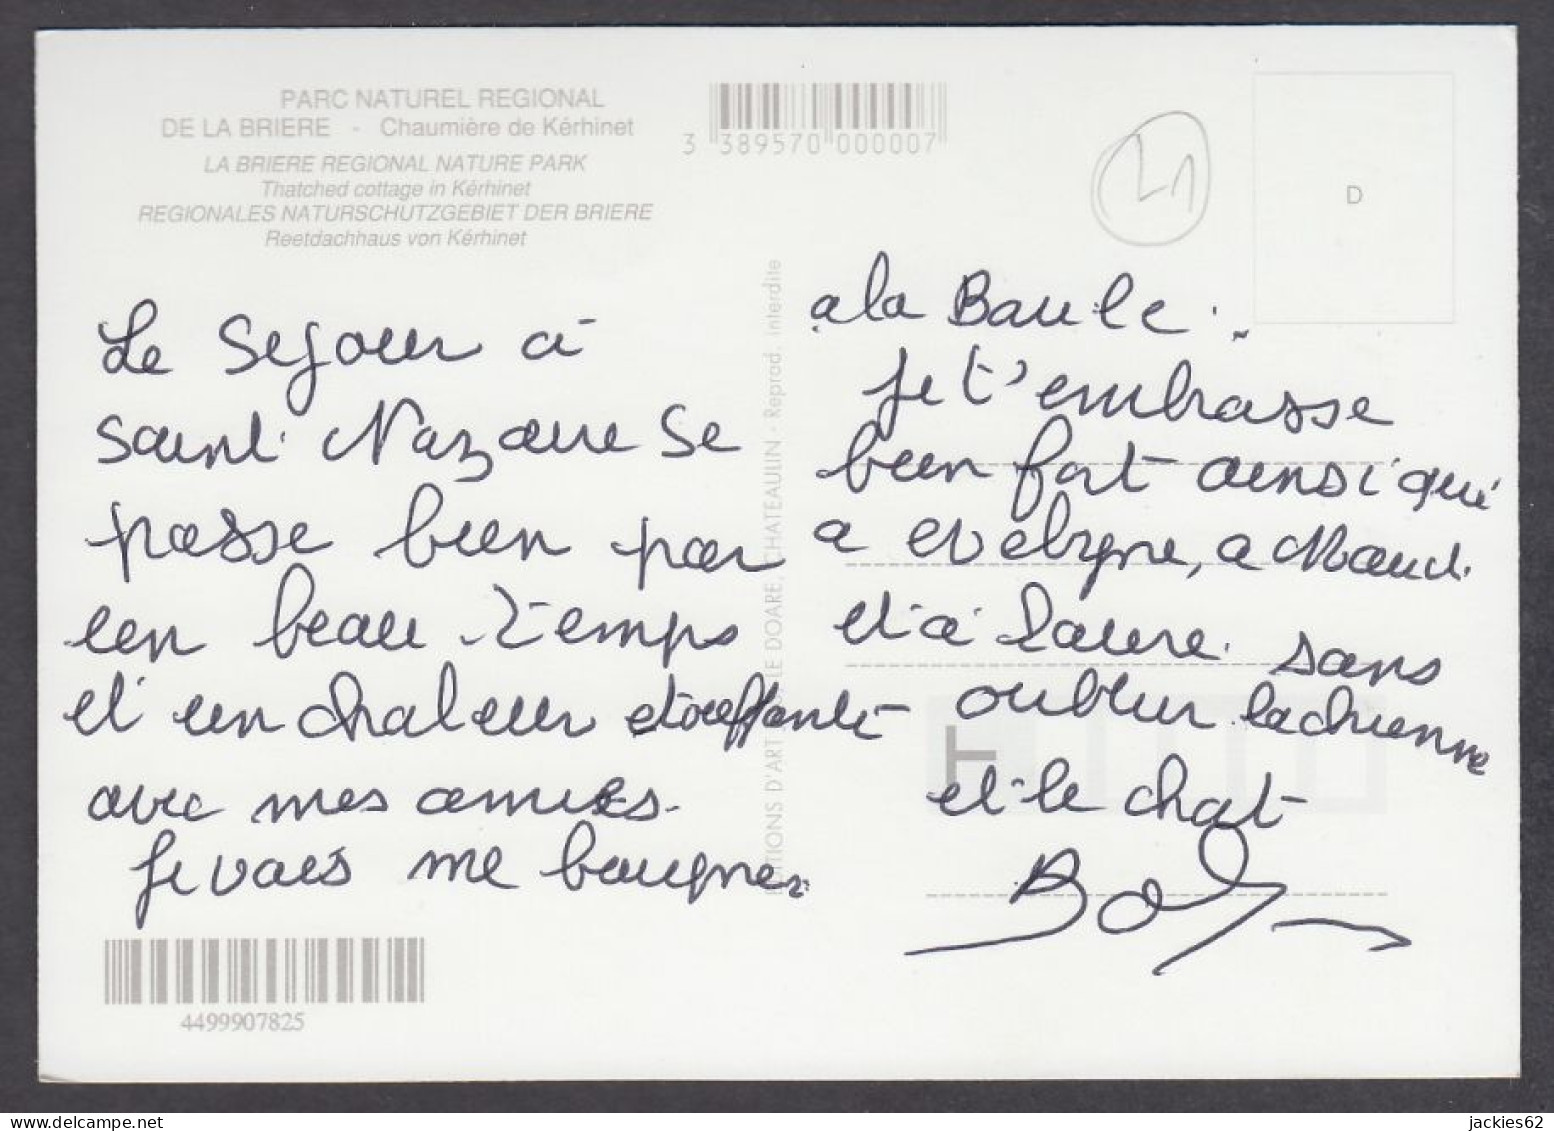 PARC NATUREL REGIONAL
DE LA BRIERE - Chaumière de Kérhinet
LA BRIERE REGIONAL NATURE PARK
Thatched cottage in Kérhinet
REGIONALES NATURSCHUTZGEBIET DER BRIERE
Reetdachhaus von Kérhinet
3 389570 000007
21
D
EDITIONS D'ART JOS LE DOARE, CHATEAULIN - Reprod. interdite
Le sejour à
Saint Nazaire se
passe bien par
un beau temps
et un chaleur etouffante
avec mes amies.
Je vais me baigner
a la Baule.
Je t'embrasse
bien fort ainsi que
a evelyne, a Maud.
et à Laure. sans
oublier la chienne
et le chat
4499907825
jackies62